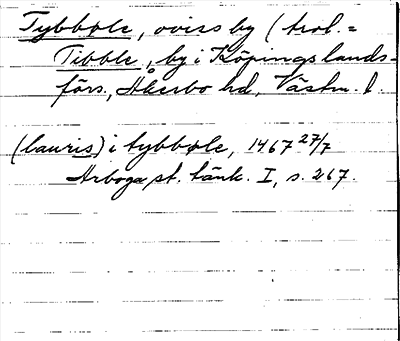 Tybbole, oviss by (trol. =
Tibble, by i Köpings lands-
förs., Åkerbo hd, Västm. l.
(lauris) i tybbole, 1467 27/7
Arboga st. tänk. I, s. 267.